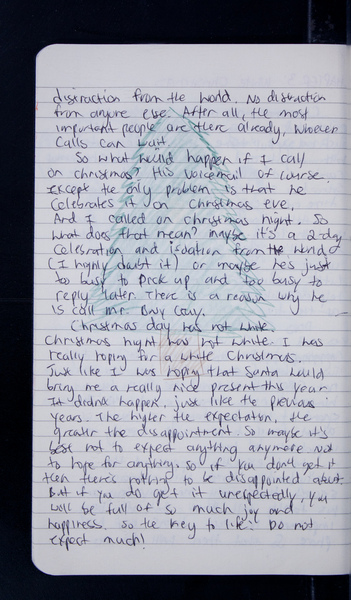 distraction from the world. No distraction
from anyone else. After all, the most
important people are there already, whoever
calls can wait.
So what would happen if I call
on christmas? His voicemail of course.
except the only problem is that he
celebrates it on Christmas eve,
And I called on christmas night. So
what does that mean? maybe it's a 2-day
celebration and isolation from the world
(I highly doubt it) or maybe he's just
to busy to pick up and too busy to
reply later. There is a reason why he
is call mr. Busy Guy.
Christmas day was not white
Christmas night was not white. I was
really hoping for a white Christmas.
Just like I was hoping that Santa would
bring me a really nice present this year
It didn't happen. just like the previous
years. The higher the expectation, the
greater the disappointment. So maybe it's
best not to expect anything anymore not
to hope for anything. So if you don't get it
then there's nothing to be disappointed about.
But if you do get it unexpectedly, you
will be full of so much joy and
happiness. so the key to life: Do not
expect much!